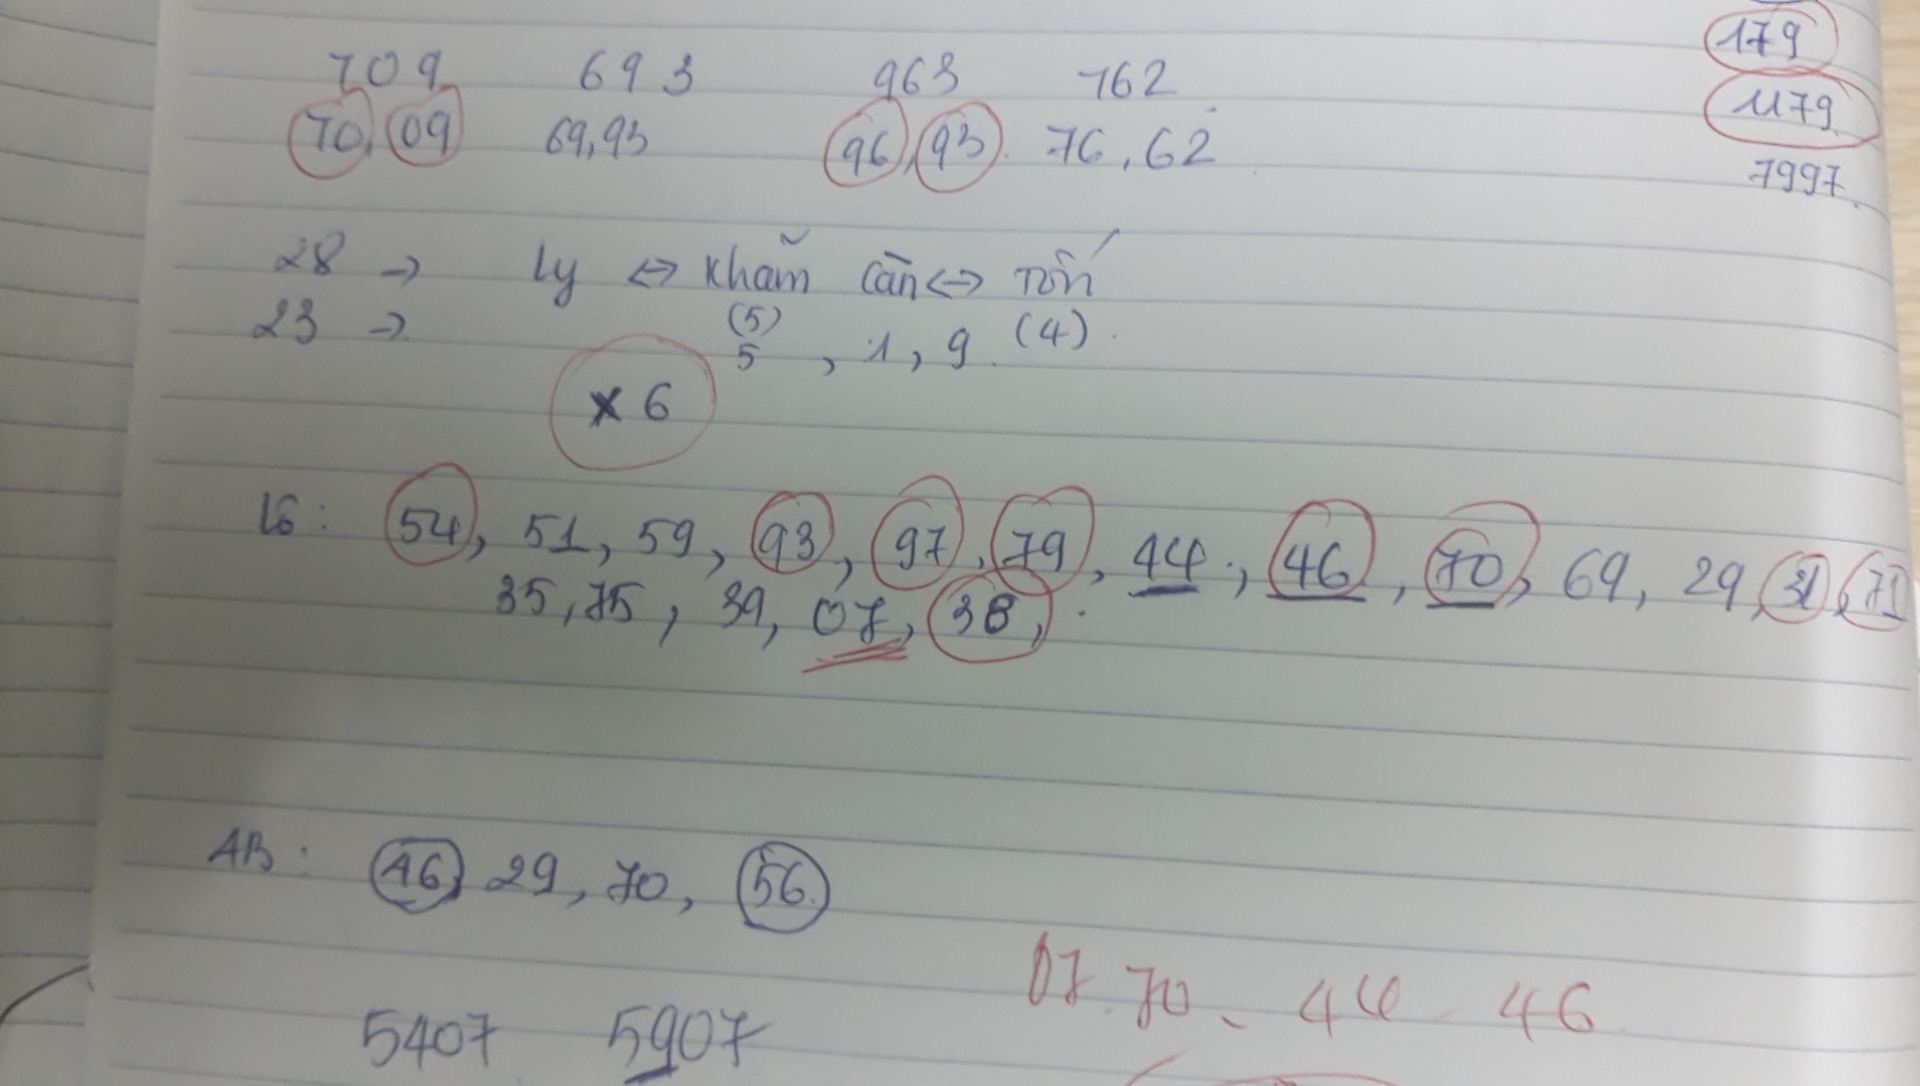 179
709 693 963 762
1179
70, 09 69,93 96, 93. 76, 62
7997
28 → Ly ↔ Khảm Càn ↔ Tốn
23 → (5) (4)
5, 1, 9
× 6
Lô: 54, 51, 59, 93, 97, 79, 44, 46, 70, 69, 29, 31, 71
35, 75, 39, 07, 38,
AB: 46, 29, 70, 56
07 70 - 44 - 46
5407 5907